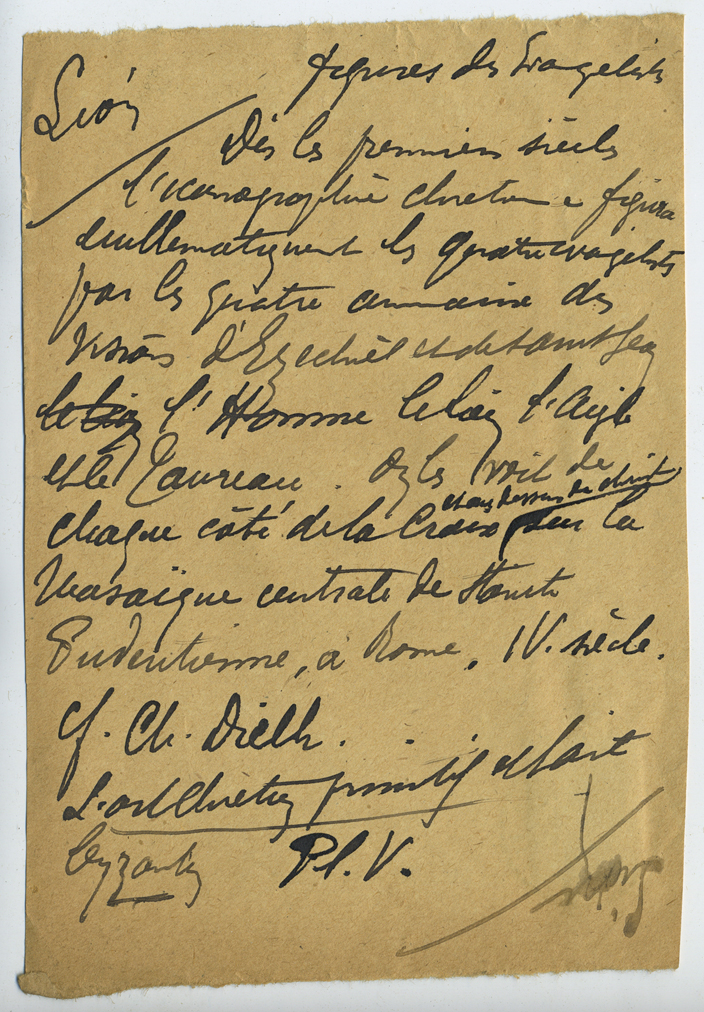 figures des Evangelistes
Lion
Dès les premiers siècles
l'iconographie chretienne figura
emblematiquement les quatre evangelistes
par les quatre animaux des
visions d'Ezechiel et de saint Jean
le lion l'Homme le Lion l'Aigle
et le Taureau. On les voit de
et au dessus du christ
chaque côté de la Croix sur la
Mosaïque centrale de Sainte
Pudentienne, à Rome, IV. siècle.
cf. Ch. Diehl.
L'art chretien primitif et l'art
byzantin Pl. V.